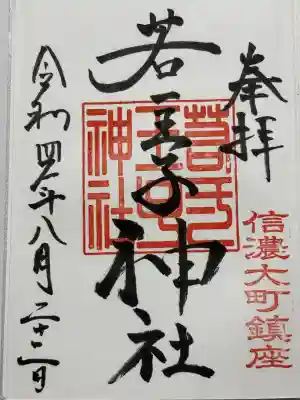 奉拝
信濃大町鎮座
若一王子神社
若一王子神社
令和四年八月二十二日